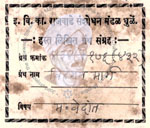 इ. वि. का. राजवाडे संशोधन मंडळ धुळे.
: हस्त लिखित ग्रंथ संग्रह :
ग्रंथ क्रमांक
ग्रंथ नाम
विषय म. वेदांत